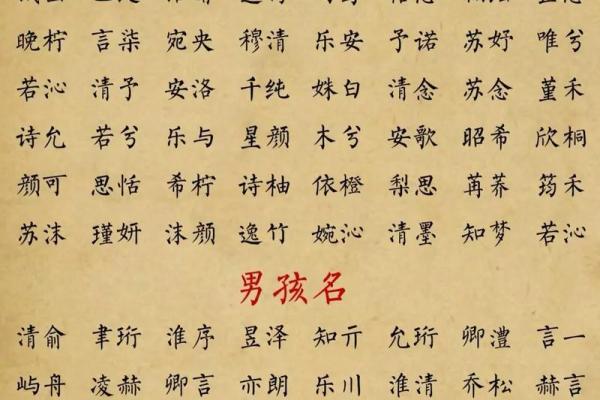 晚柠 言柒 宛央 穆清 乐安 予诺 苏妤 唯兮
若沁 清予 安洛 千纯 姝白 清念 苏念 堇禾
诗允 若兮 乐与 星颜 木兮 安歌 昭希 欣桐
颜可 思恬 希柠 诗柚 依橙 梨思 苒荞 筠禾
苏沫 瑾妍 沫颜 逸竹 婉沁 清墨 知梦 若沁
男孩名
清俞 聿珩 淮序 昱泽 知亓 允珩 卿澧 言一
屿舟 凌赫 卿言 亦朗 乐川 淮清 乔松 赫言